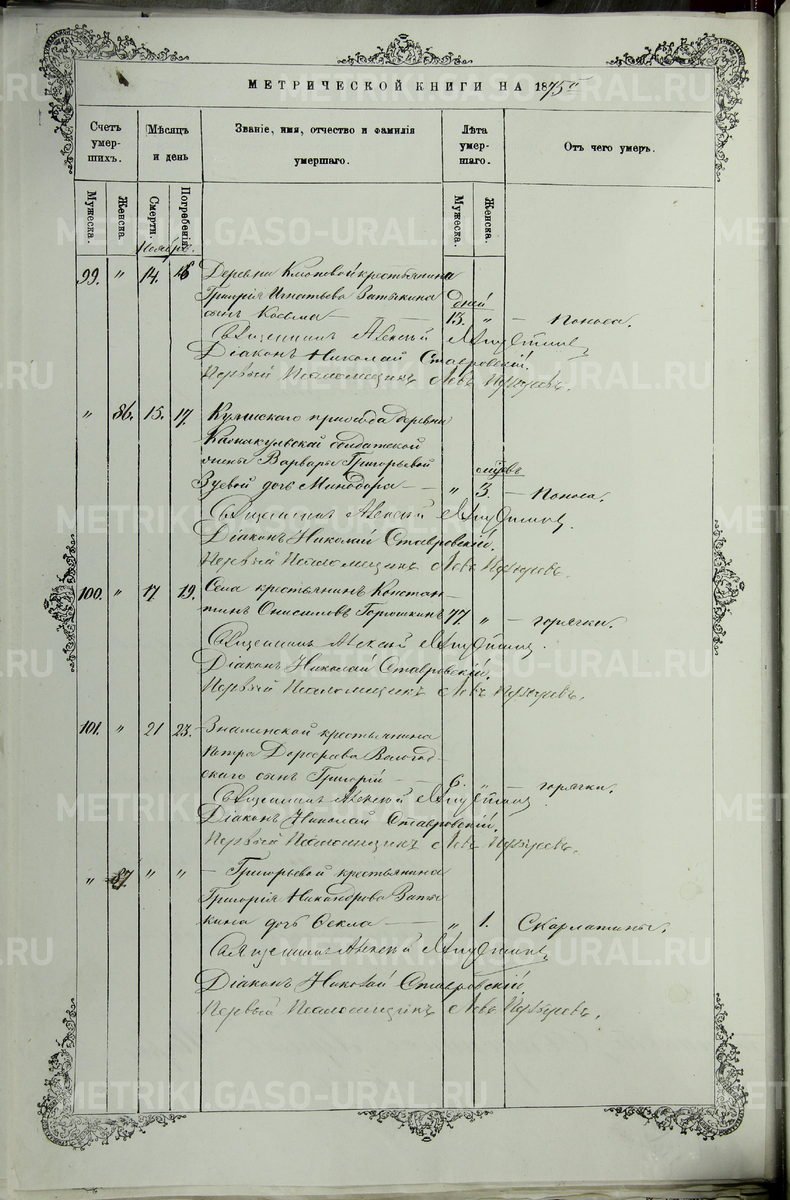 МЕТРИЧЕСКОЙ КНИГИ НА 1875 г
Счетъ умершихъ.
Мѣсяцъ и день
Званіе, имя, отчество и фамилія умершаго.
Лѣта умершаго.
Отъ чего умеръ.
Мужеска.
Женска.
Смерти.
Погребенія.
Мужеска.
Женска.
Ноябрь.
99. " 14. 16 Деревни Клоповой крестьянина
Григорія Игнатьева Затыкина дней
сынъ Косьма — 13. " — Поноса.
Священникъ Алексѣй
Діаконъ Николай Ставровскій.
Первый Псаломщикъ Левъ
" 86. 15. 17. прихода деревни
солдатской
жены Варвары Григорьевой мѣсяцъ
Зуевой дочь Минодора — " 3. — Поноса.
Священникъ Алексѣй
Діаконъ Николай Ставровскій.
Первый Псаломщикъ Левъ
100. " 17 19. Села крестьянинъ Констан-
тинъ Онисимовъ Горошкинъ 77. " — горячки.
Священникъ Алексѣй
Діаконъ Николай Ставровскій.
Первый Псаломщикъ Левъ
101. " 21 23. Знаменской крестьянина
Петра Дороѳеева Вологод-
скаго сынъ Григорій — 6. " — горячки.
Священникъ Алексѣй
Діаконъ Николай Ставровскій.
Первый Псаломщикъ Левъ
" 87. " " — Григорьевой крестьянина
Григорія Никандрова Заты-
кина дочь Ѳекла — " 1. Скарлатины.
Священникъ Алексѣй
Діаконъ Николай Ставровскій.
Первый Псаломщикъ Левъ
METRIKI.GASO-URAL.RU